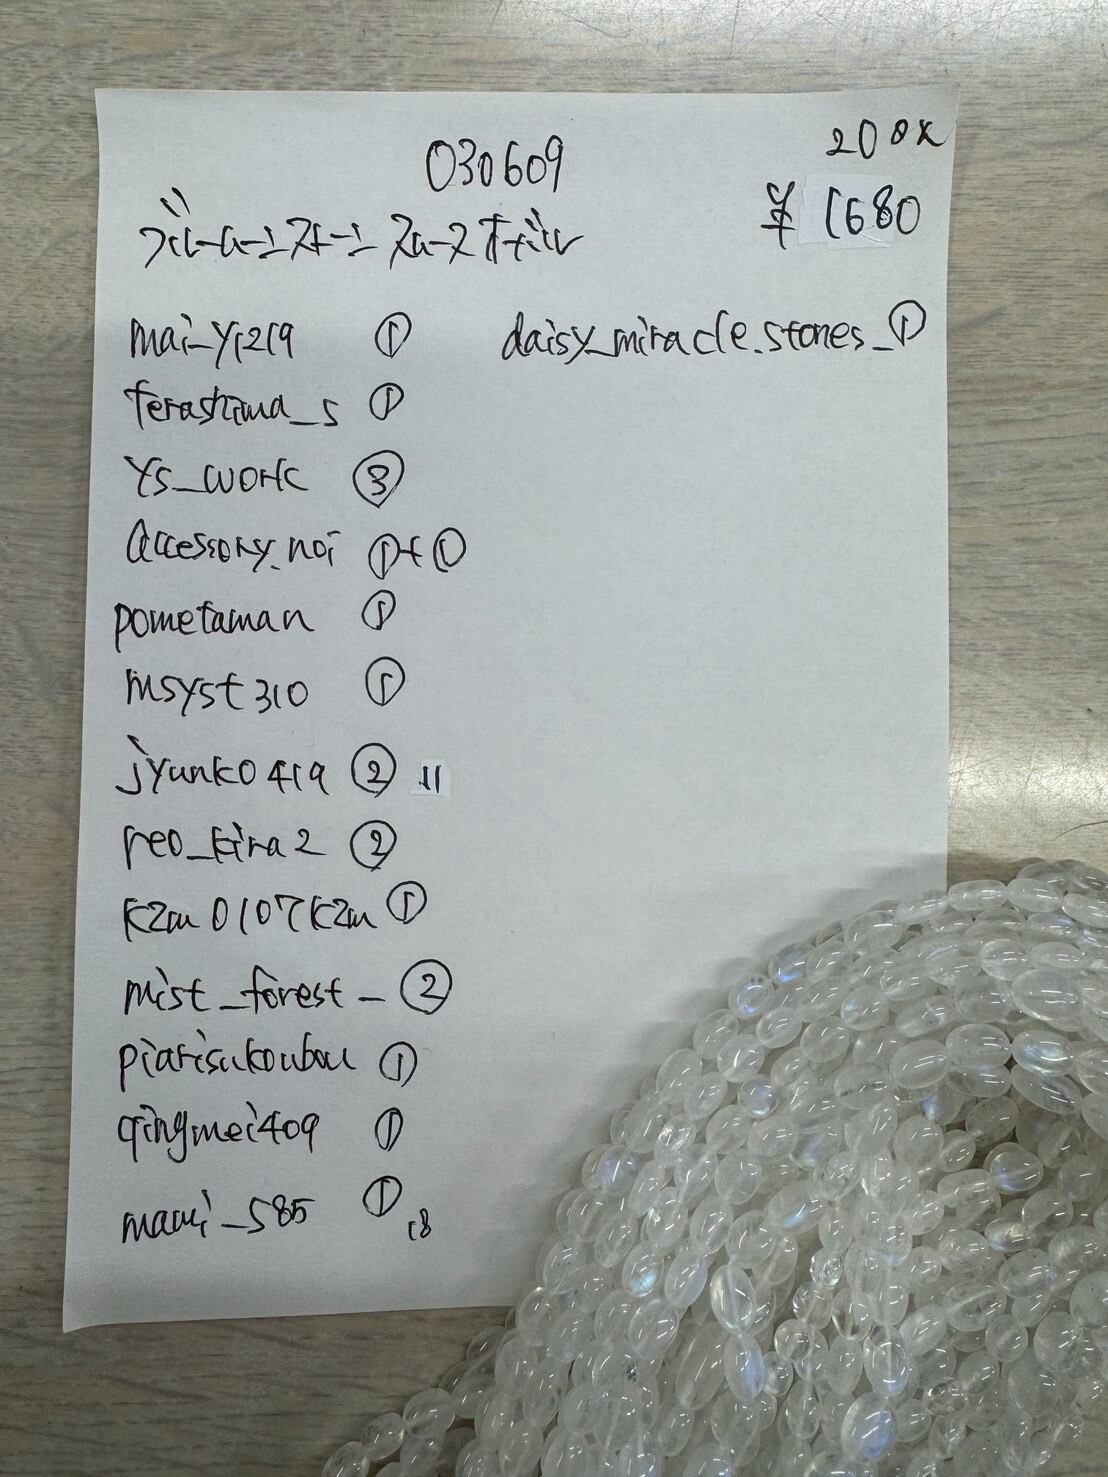 030609
200×
¥1680
ブルームーンストーン スムースオーバル
mai_y1219 ①
terashima_s ①
ys_work ③
accessory.noi ①+①
pometaman ①
msyst310 ①
jyunko419 ② .11
reo_kira2 ②
kzm0107kzm ①
mist_forest_ ②
piarisukoubou ①
qingmei409 ①
mami_585 ① .18
daisy_miracle.stones_ ①